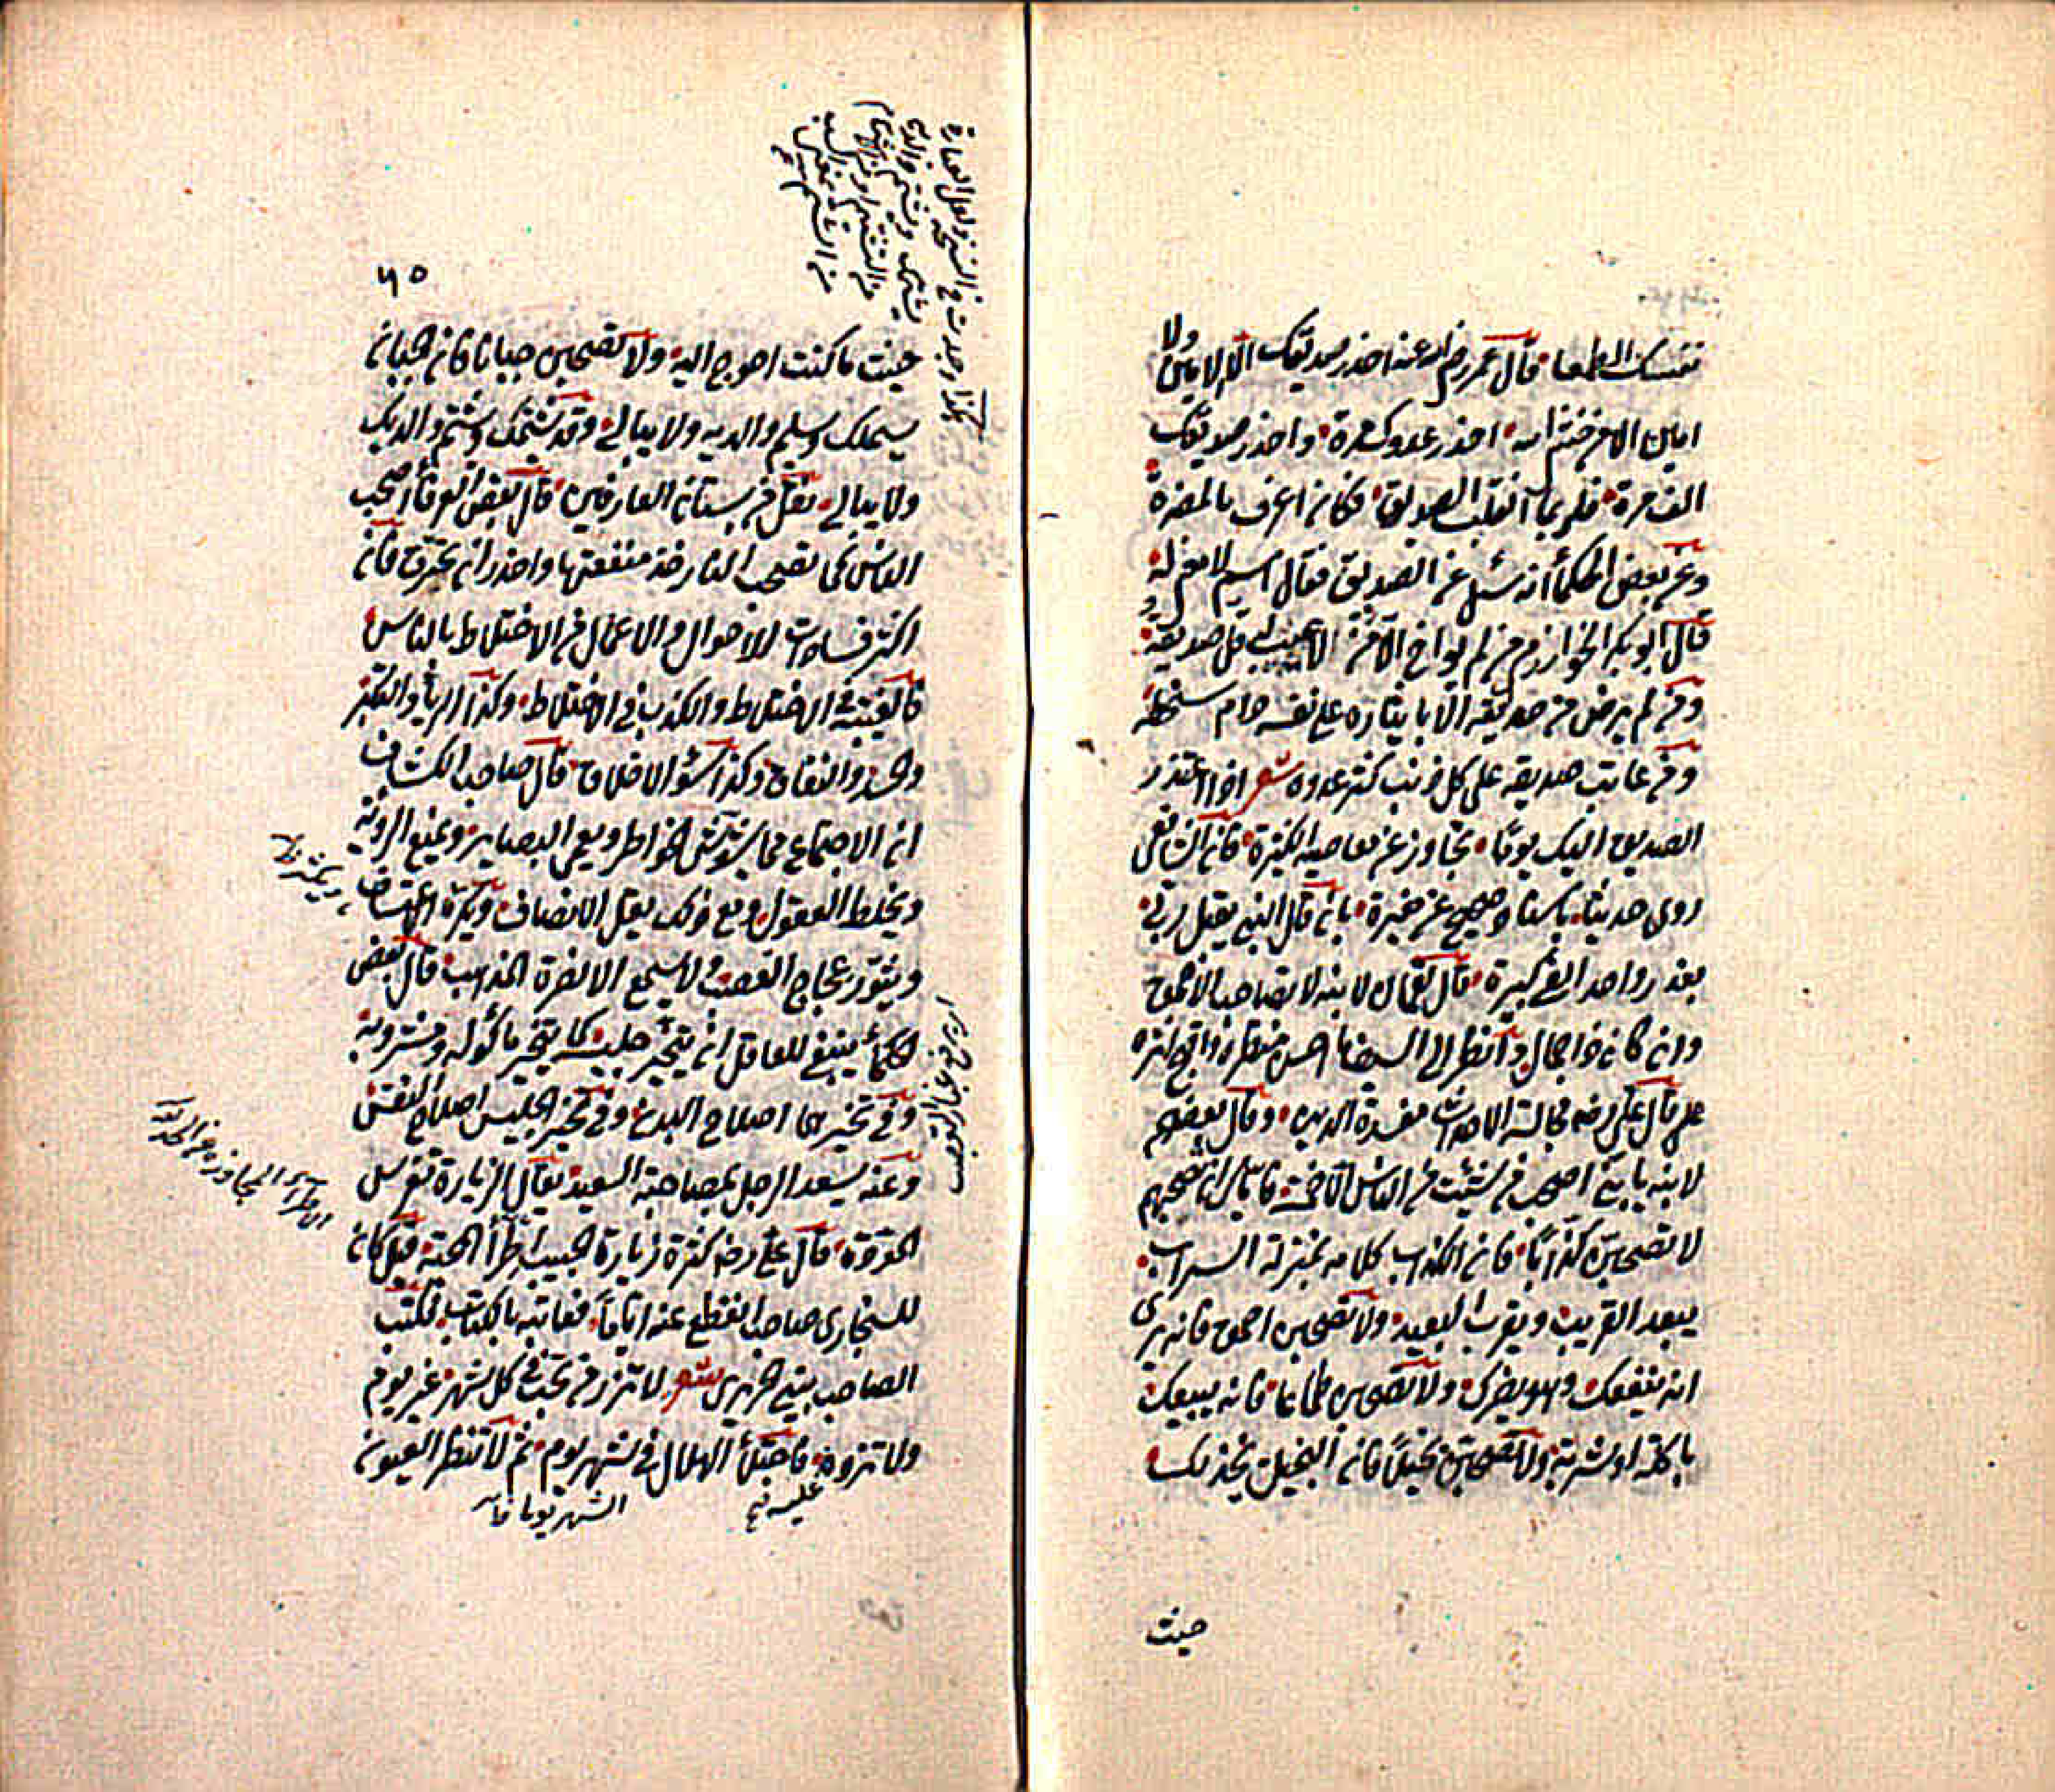 نفسك المطمعا قال عمر رضي الله عنه احذر صديقك الا الامين ولا
امين الا من خشي الله احذر عدوك مرة واحذر صديقك
الف مرة فلربما انقلب الصديق فكان اعرف بالمضرة
وعن بعض الحكمأ انه سئل عن الصديق فقال اسم لا معنى له
قال ابو بكر الخوارزمي من لم يواخ الا من لا عيب له قل صديقه
ومن لم يرض من صديقه الا بايثاره على نفسه دام سخطه
ومن عاتب صديقه على كل ذنب كثر عدوه شعر اذا اعتذر
الصديق اليك يوما تجاوز عن معاصيه الكثيرة فان الشافعي
روى حديثا باسناد صحيح عن مغيرة بان قال النبي يقبل ربي
بعذر واحد الفي كبيرة قال لقمان لابنه لا تصاحب الاحمق
وان كان ذا جمال وانظر الى السيف ما احسن منظره واقبح اثره
قال علي رضه مجالسة الاحداث مفسدة الدين وقال بعضهم
لابنه يا بني اصحب من شئت من الناس الا خمسة فاياك ان تصحبهم
لا تصحبن كذابا فان الكذاب كلامه بمنزلة السراب
يبعد القريب ويقرب البعيد ولا تصحبن احمق فانه يرى
انه ينفعك وهو يضرك ولا تصحبن طماعا فانه يبيعك
باكلة او شربة ولا تصحبن بخيلا فان البخيل يخذلك
حيث
٦٥
حيث ما كنت احوج اليه ولا تصحبن جبانا فان الجبان
يسلمك ويسلم والديه ولا يبالي وقد يشتمك ويشتم والديك
ولا يبالي نقل من بستان العارفين قال بعض العرفأ اصحب
الناس كما تصحب النار خذ منفعتها واحذر ان تحرقك فان
اكثر فسادات الاحوال والاعمال من الاختلاط بالناس
فالغيبة في الاختلاط والكذب في الاختلاط وكذا الريأ والتكبر
والحسد والنفاق وكذا سؤ الاخلاق قال صاحب الكشاف
ان الاجتماع مما يشوش الخواطر ويعمي البصاير ويمنع الروية
ويخلط العقول ومع ذلك يقل الانصاف ويكثر الاعتساف
ويثور عجاج التعصب ولا يسمع الا نصرة المذهب قال بعض
الحكمأ ينبغي للعاقل ان يتخير جليسه كما يتخير مأكوله ومشروبه
وفي تخيرهما اصلاح البدن وفي تخير الجليس اصلاح النفس
وعنه يسعد الرجل بمصاحبة السعيد يقال الزيارة تغرس
المودة قال علي رضه كثرة زيارة الحبيب اطرأ المحبة قيل كان
للسنجاري صاحب انقطع عنه اياما فعاتبه بالكتاب فكتب
الصاحب بيتي الحريري شعر لا تزر من تحب في كل شهر غير يوم
ولا تزده فاجتلأ الهلال في الشهر يوم ثم لا تنظر العيون
عليه
كذا وجدت في النسخة ولعل العبارة
اي يرفع غبار التعصب